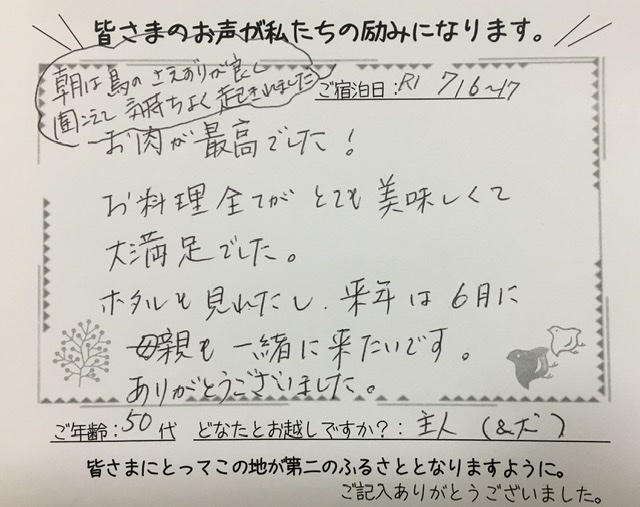 皆さまのお声が私たちの励みになります。
朝は鳥のさえずりが良く
聞こえて気持ちよく起きれました
ご宿泊日：R1 7/6〜17
お肉が最高でした！
お料理全てがとても美味しくて
大満足でした。
ホタルも見れたし、来年は6月に
母親も一緒に来たいです。
ありがとうございました。
ご年齢：50代 どなたとお越しですか？：主人（&犬）
皆さまにとってこの地が第二のふるさととなりますように。
ご記入ありがとうございました。